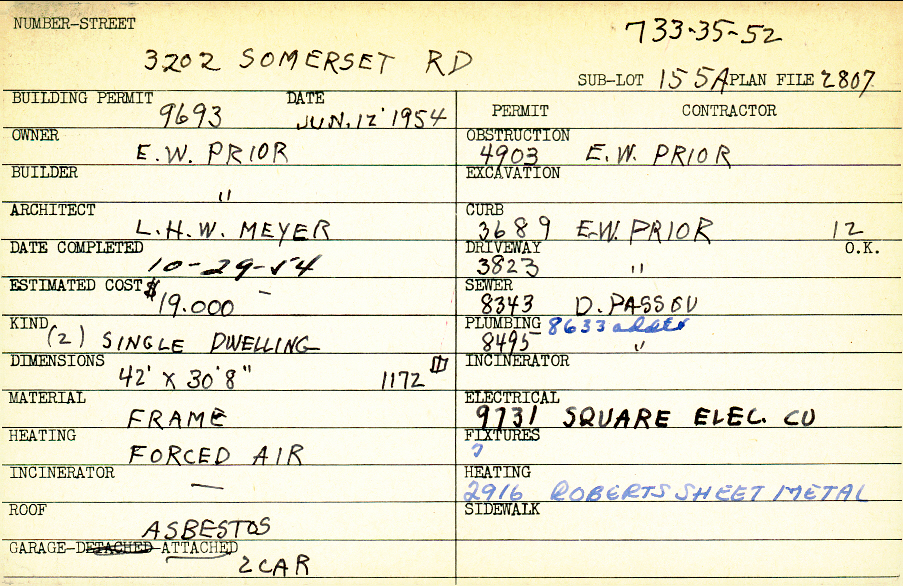 NUMBER-STREET 733-35-52
3202 SOMERSET RD
SUB-LOT 155A PLAN FILE 2807
BUILDING PERMIT 9693 DATE JUN. 12 1954
PERMIT CONTRACTOR
OWNER E.W. PRIOR
OBSTRUCTION 4903 E.W. PRIOR
BUILDER "
EXCAVATION
ARCHITECT L.H.W. MEYER
CURB 3689 E.W. PRIOR 12
DATE COMPLETED 10-29-54
DRIVEWAY 3823 " O.K.
ESTIMATED COST $19.000 —
SEWER 8343 D. PASSOV
KIND (2) SINGLE DWELLING
PLUMBING 8633 added
8495 "
DIMENSIONS 42' X 30'8" 1172
INCINERATOR
MATERIAL FRAME
ELECTRICAL 9731 SQUARE ELEC. CO
HEATING FORCED AIR
FIXTURES 7
INCINERATOR —
HEATING 2916 ROBERTS SHEET METAL
ROOF ASBESTOS
SIDEWALK
GARAGE-DETACHED-ATTACHED
2 CAR